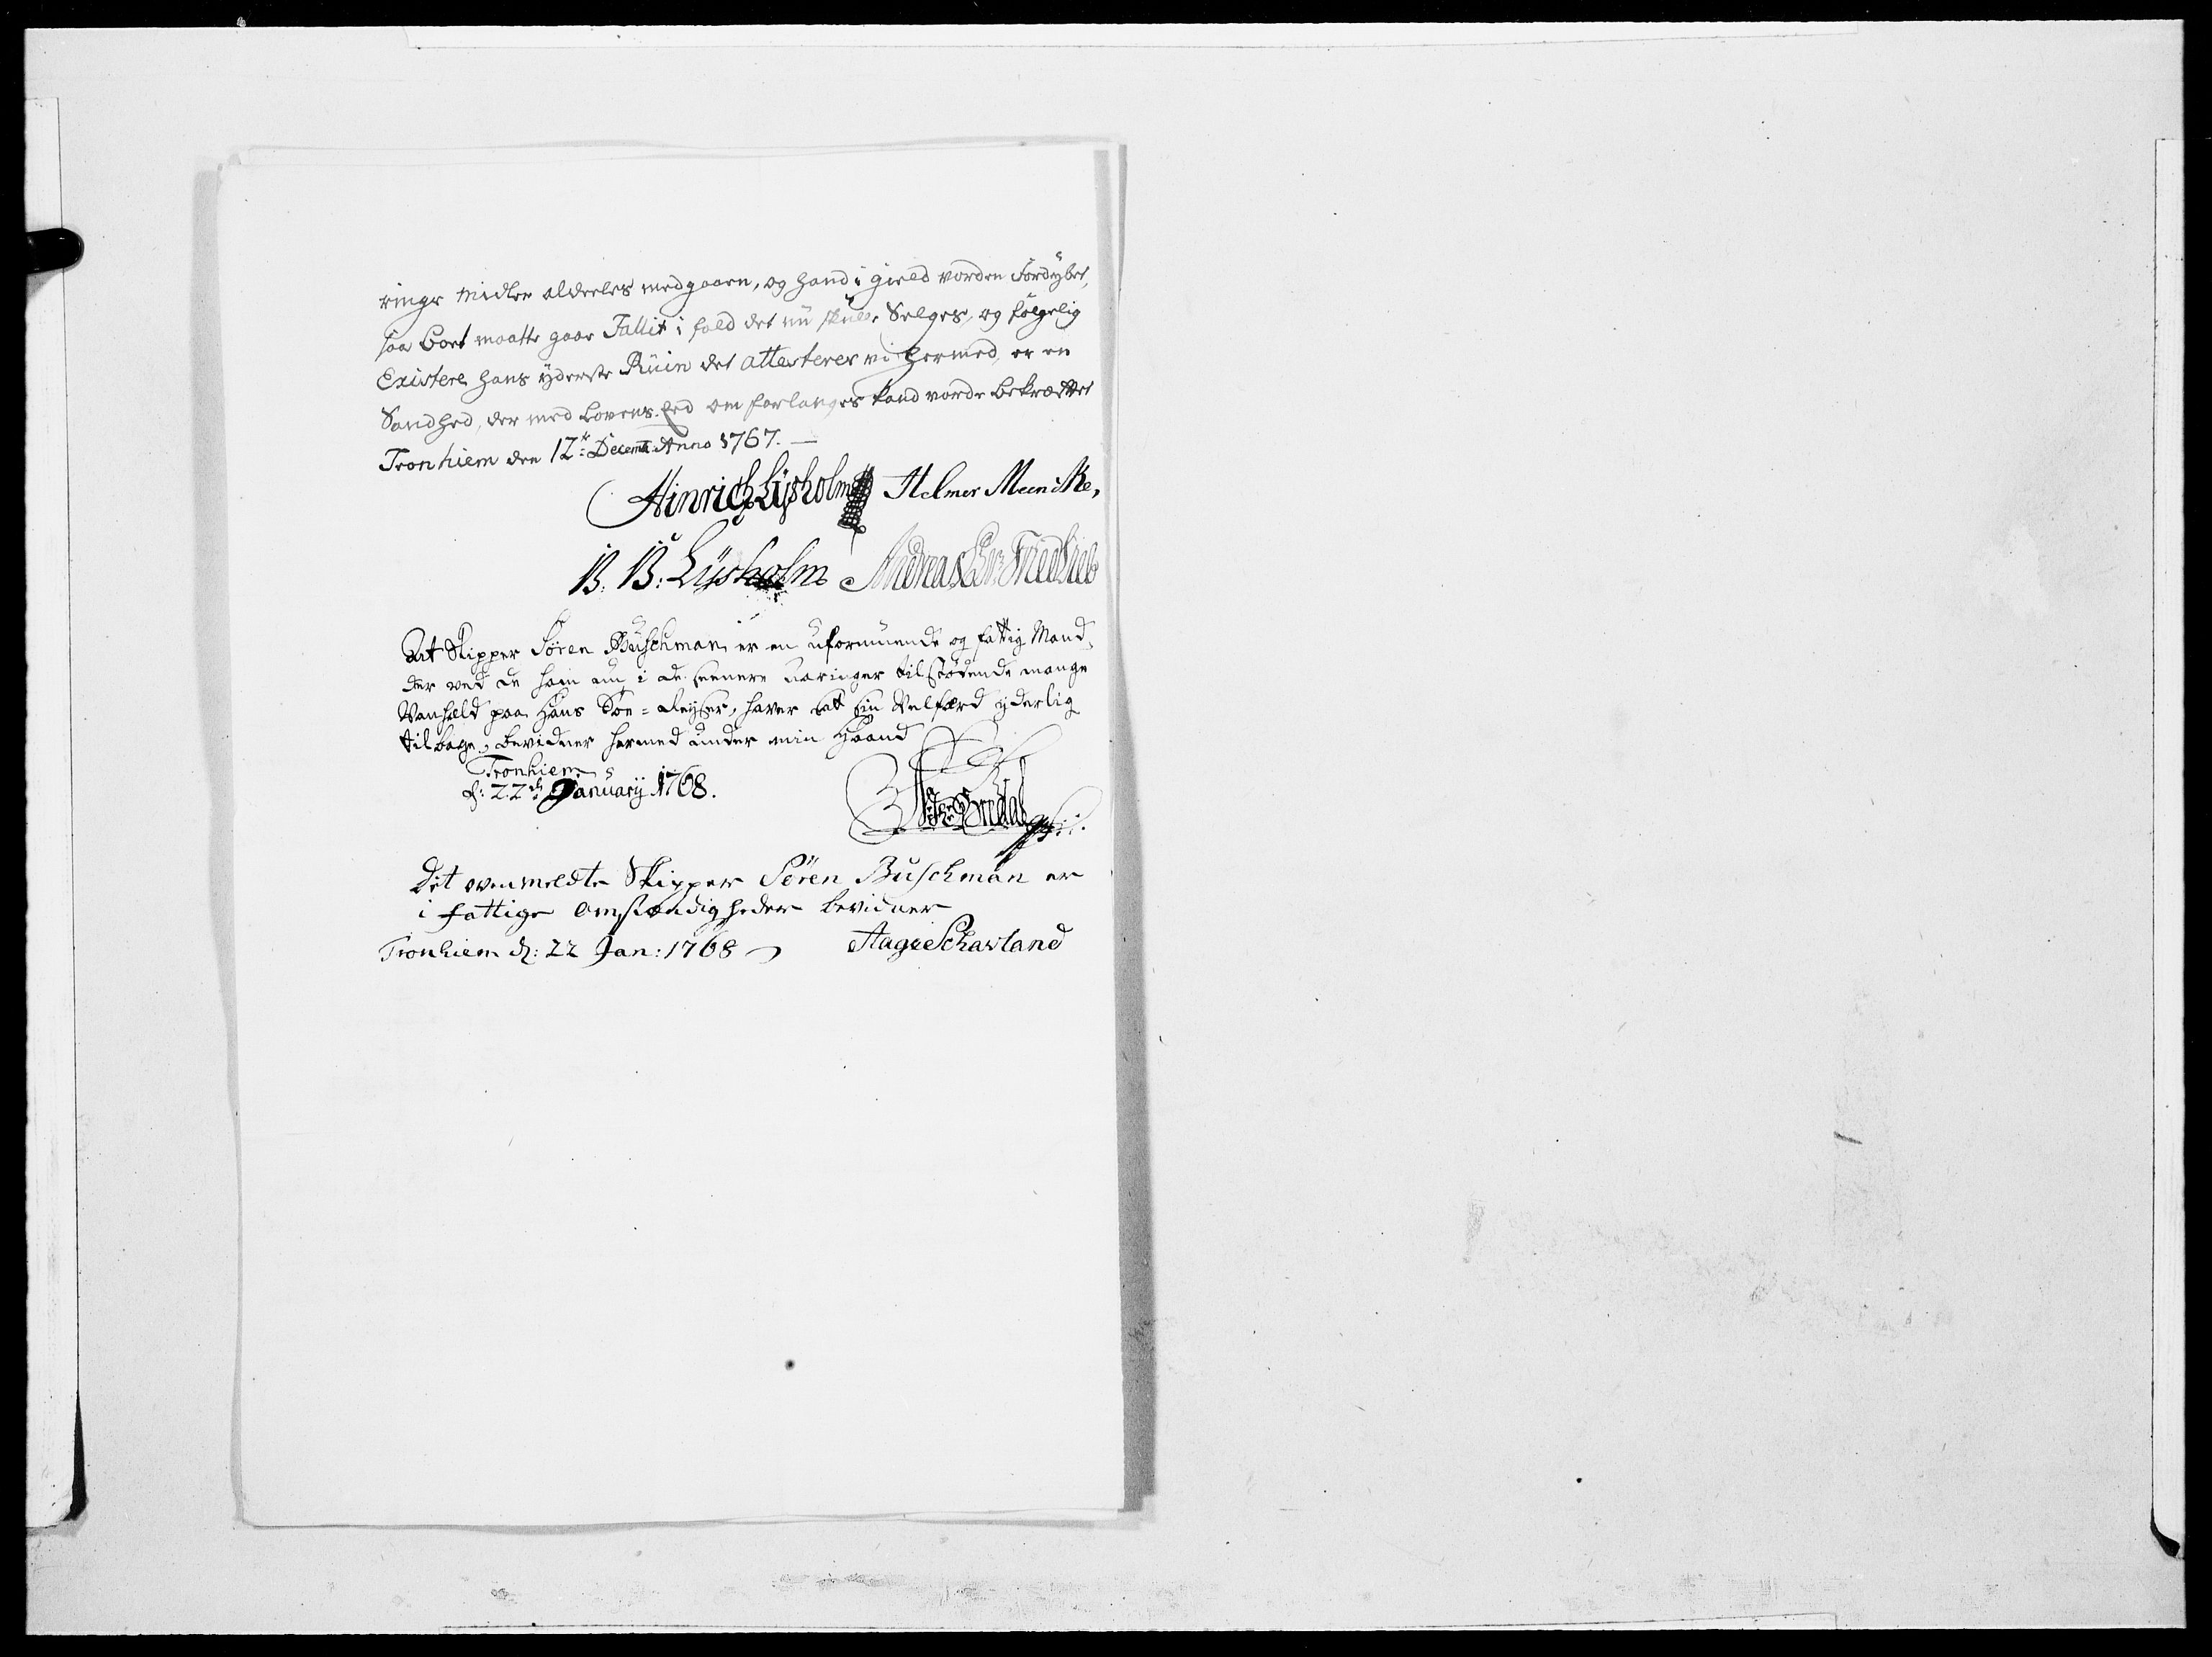 ringe Midler aldeeles medgaaen, og hand i gield vorden Fordybet,
saa Bort maatte gaae Fallit i fald det nu skulle Selges, og følgelig
Existere hans yderste Ruin det attesterer vi hermed, er en
Sandhed, der med Lovens Eed om forlanges kand vorde bekræftet
Tronhiem den 12te Decemb: Anno 1767. —
Hinrich Lysholm Helmer Meencke,
B. B: Lysholm Andreas Friedlieb
At Skipper Søren Buschman er en uformuende og fattig Mand,
der ved de ham nu i de seenere Aaringer tilstødende mange
Vanheld paa hans Søe-Reyser, haver sat sin Velfærd yderlig
tilbage, bevidner hermed under min Haand
Tronhiem
d: 22de January 1768.
Bredal
Det ovenmeldte Skipper Søren Buschman er
i fattige Omstændigheder bevidner
Tronhiem d: 22 Jan: 1768 Aage Schavland